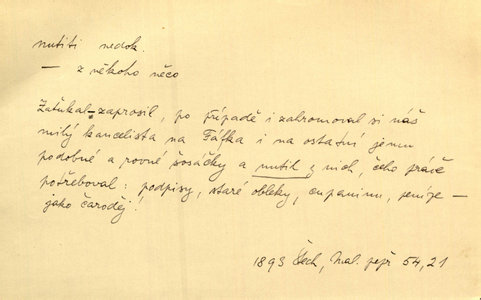 nutiti nedok.
— z někoho něco
Zaťukal-zaprosil, po případě i zahromoval si náš
milý kancelista na Fáfka i na ostatní jemu
podobné a rovné šosáčky a nutil z nich, čeho právě
potřeboval: podpisy, staré obleky, cupaninu, peníze —
jako čaroděj!
1893 Čech, Mal. pepř 54,21